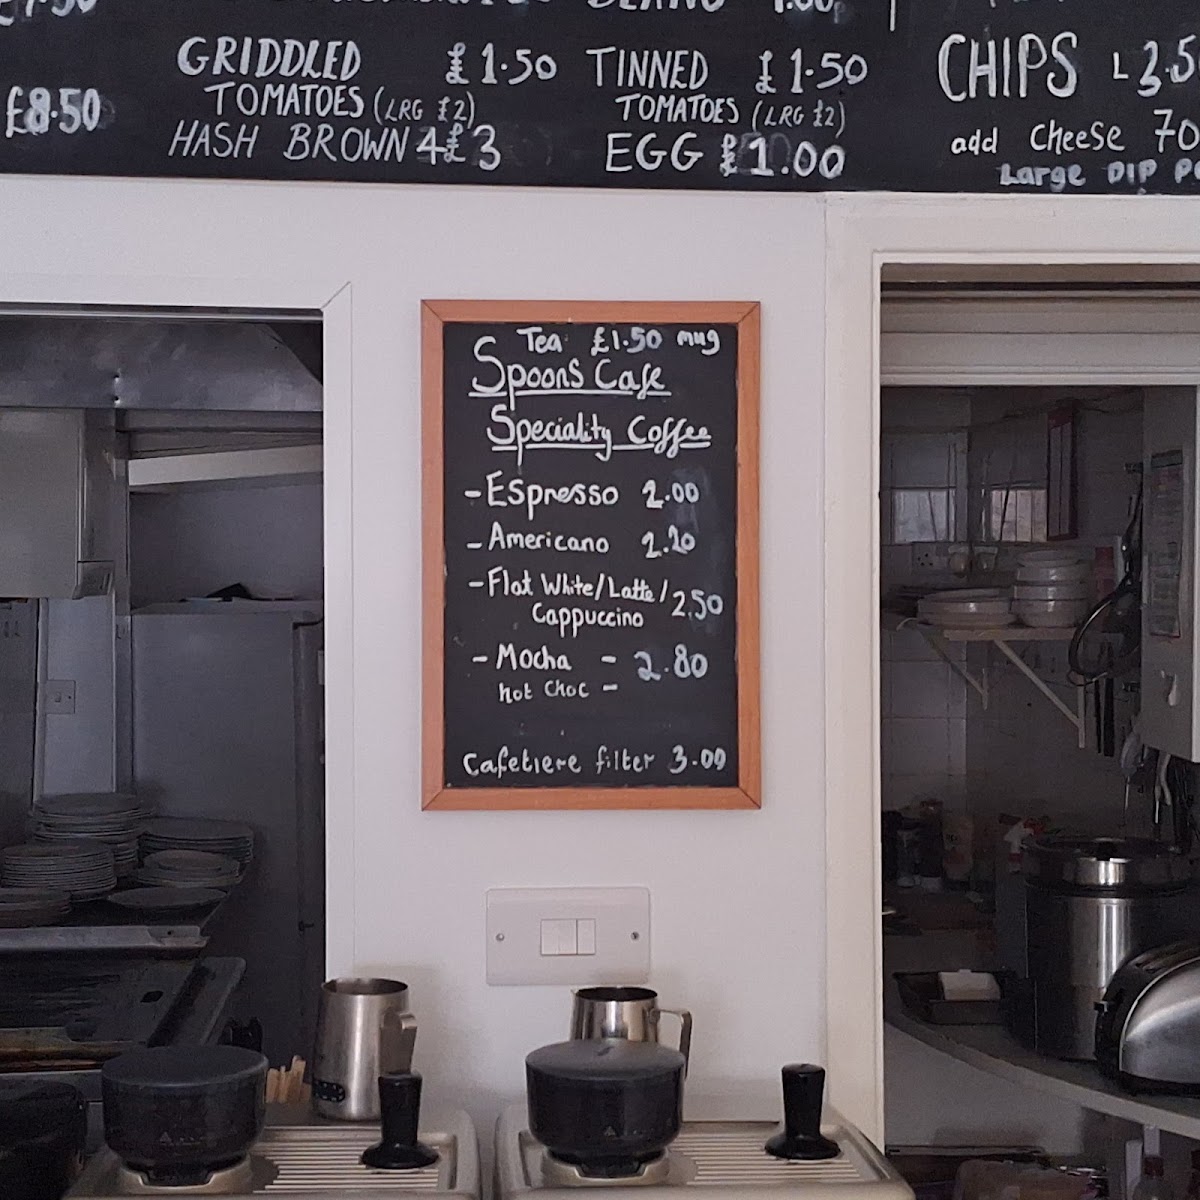 £8.50
GRIDDLED £1.50
TOMATOES (LRG £2)
HASH BROWN 4£3
TINNED £1.50
TOMATOES (LRG £2)
EGG £1.00
CHIPS
add cheese
Large DIP
Tea £1.50 mug
Spoons Cafe
Speciality Coffee
- Espresso 2.00
- Americano 2.20
- Flat White/Latte/ 2.50
Cappuccino
- Mocha - 2.80
hot choc -
Cafetiere filter 3.00